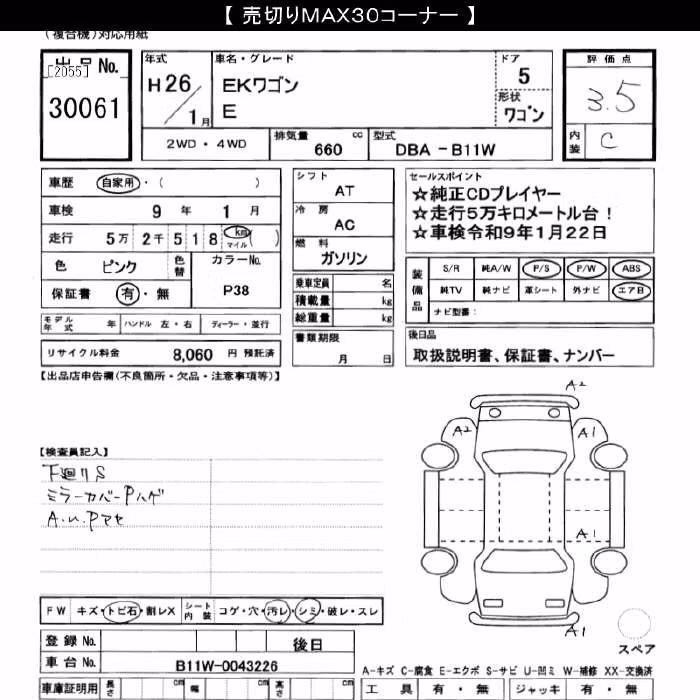 【 売切りMAX30コーナー 】
(複合機)対応用紙
出品No.
[2055]
30061
年式
H26/1月
車名・グレード
EKワゴン
E
ドア
5
形状
ワゴン
評価点
3.5
内装
C
2WD・4WD
排気量 cc
660
型式
DBA - B11W
車歴 自家用・( )
車検 9年 1月
走行 5万2千518 km マイル ( )
色 ピンク
色替
カラーNo.
P38
保証書 有・無
シフト
AT
冷房
AC
燃料
ガソリン
乗車定員 名
積載量 kg
総重量 kg
セールスポイント
☆純正CDプレイヤー
☆走行5万キロメートル台!
☆車検令和9年1月22日
装備品
S/R 純A/W P/S P/W ABS
純TV 純ナビ 革シート 外ナビ エアB
ナビ型番:
モデル年式 年 ハンドル 左・右 ディーラー・並行
リサイクル料金 8,060 円 預託済
書類期限
月 日
後日品
取扱説明書、保証書、ナンバー
【出品店申告欄(不良箇所・欠品・注意事項等)】
【検査員記入】
下廻りS
ミラーカバーPハゲ
A.u.Pマセ
A2
A2
A1
A1
A1
FW キズ・トビ石・割レX シート内装 コゲ・穴・汚レ・シミ・破レ・スレ
登録No. 後日
車台No. B11W-0043226
スペア
A-キズ C-腐食 E-エクボ S-サビ U-凹ミ W-補修 XX-交換済
車庫証明用 長さ cm 幅 cm 高さ cm
工具 有・無 ジャッキ 有・無